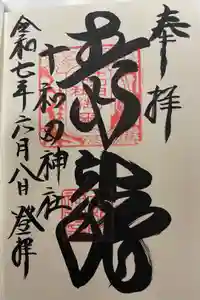 奉拝
青龍
十和田神社
令和七年六月八日登拝